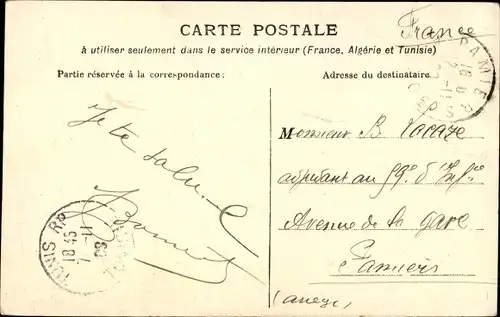 CARTE POSTALE
France
à utiliser seulement dans le service intérieur (France, Algérie et Tunisie)
Partie réservée à la correspondance :
Adresse du destinataire
PAMIERS
Je te salue
TUNIS RP
18 45
7 -11
08
Monsieur B. Lacaze
adjudant au 59e d'Infie
Avenue de la gare
Pamiers
(Ariège)